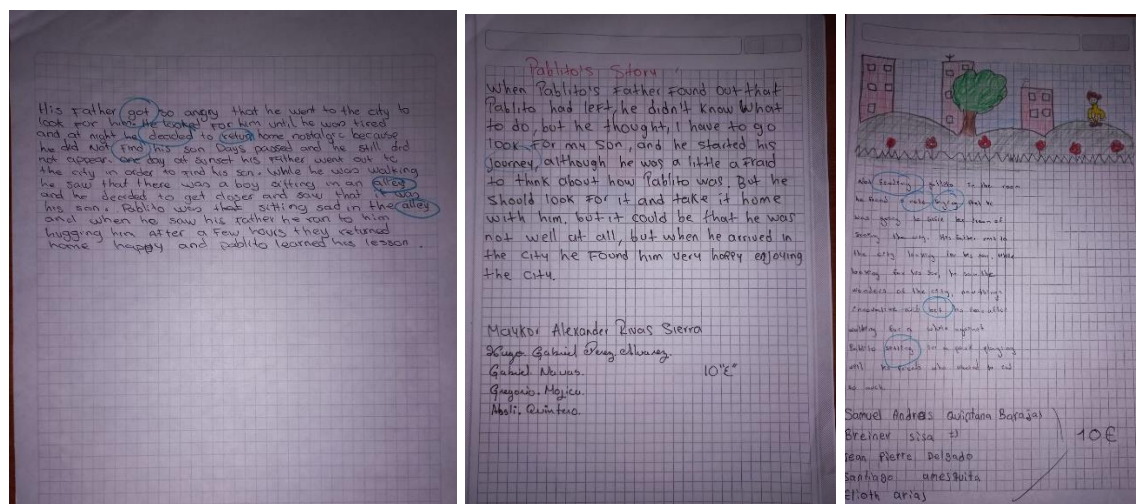 His Father got so angry that he went to the city to
look For him. He looked For him until he was tired
and at night he decided to return home nostalgic because
he did Not Find his son Days passed and he still did
not appear. one day at sunset his father went out to
the city in order to find his son. While he was walking
he saw that there was a boy sitting in an alley
and he decided to get closer and saw that it was
his son. Pablito was sitting sad in the alley
and when he saw his father he ran to him
hugging him After a Few hours they returned
home happy and pablito learned his lesson.
Pablito's Story
When Pablito's Father Found out that
Pablito had left, he didn't know What
to do, but he thought, I have to go
look For my son, and he started his
Journey, although he was a little a Fraid
to think about how Pablito was. But he
should look for it and take it home
with him. but it could be that he was
not well at all, but when he arrived in
the city he Found him very happy enjoying
the city.
Maykor Alexander Rivas Sierra
Hugo Gabriel Perez Alvarez.
Gabriel Navas. 10"E"
Gregorio. Mojica.
Absli. Quintero.
pablito in the room
he found a note saying that he
was going to
the city. His father went to
the city looking for his son, while
looking for his son, he saw the
wonders of the city,
innovative and
walking for a while
Pablito in a park playing
with his friends who
so much.
Samuel Andres quintana Barajas
Breiner sisa 10 E
Jean Pierre Delgado
Santiago amesquita
Elioth arias